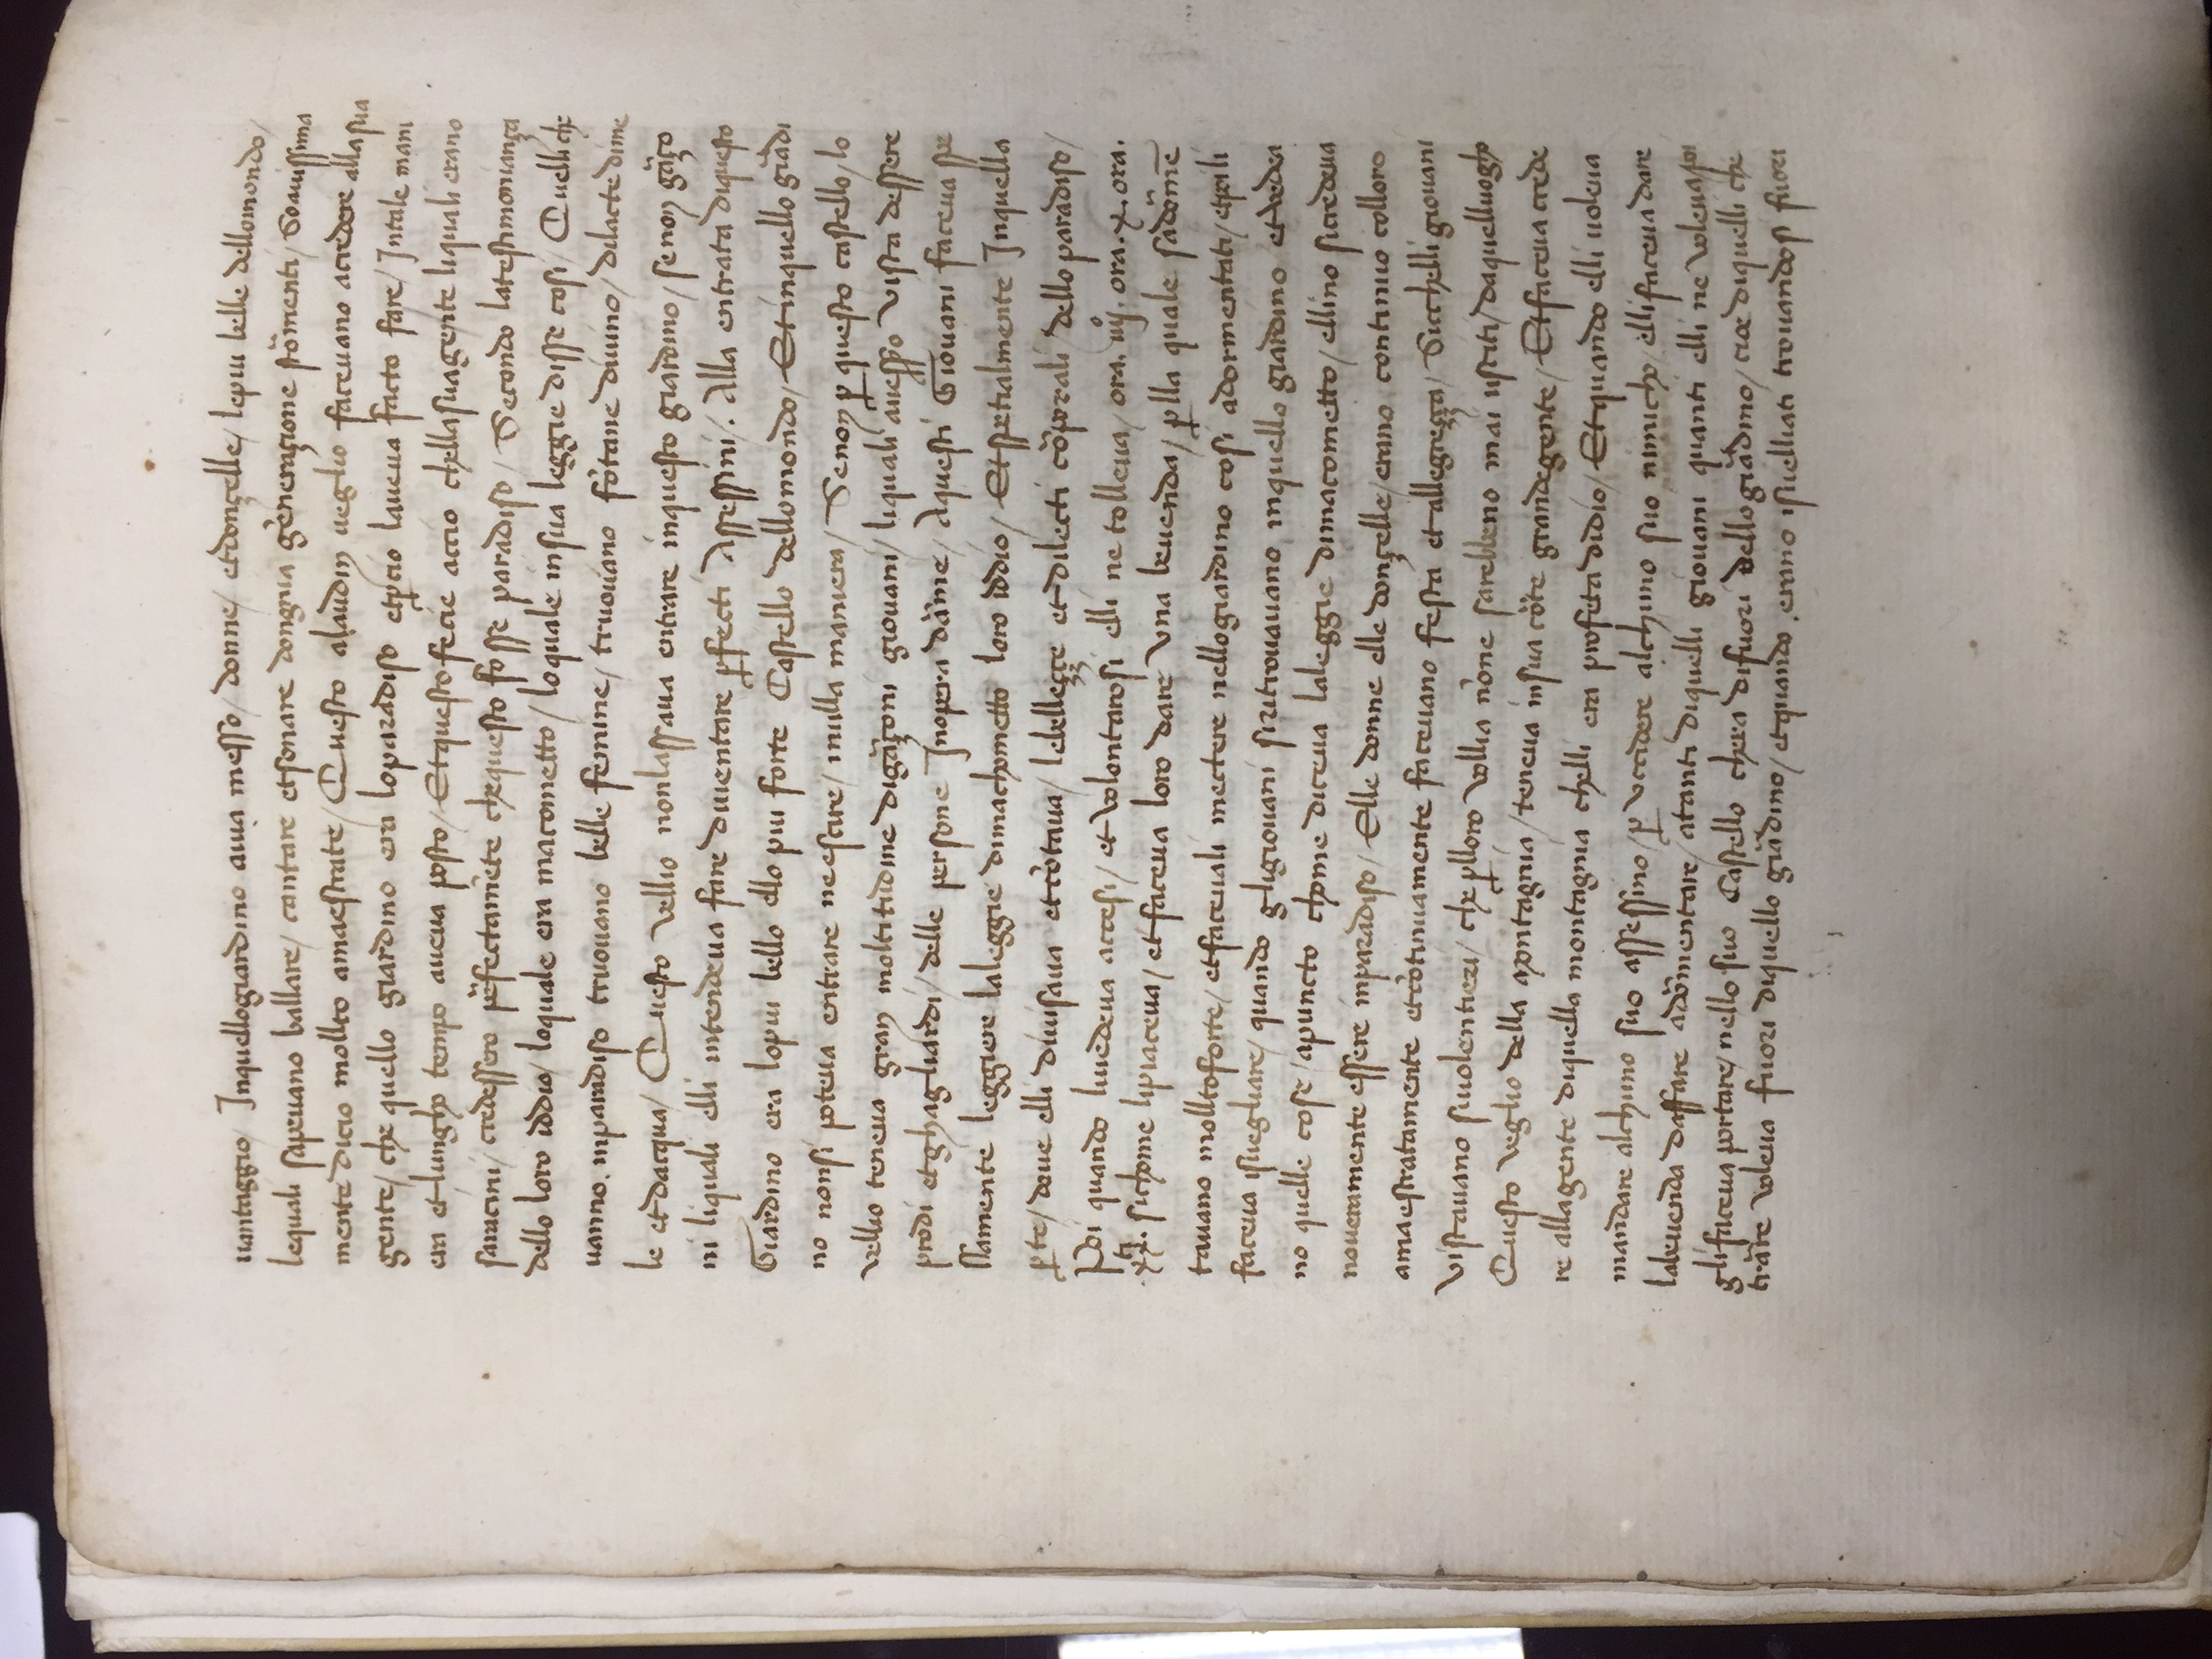 uantaggio / Inquellogiardino auia messo / donne / etdonçelle / lepiu belle dellomondo /
lequali sapeuano ballare / cantare etsonare dongnia generaçione stõmenti / Soauissima
mente dicio mollto amaestrate / Questo alaudin ueglio faceuano accredere allasua
gente / che quello giardino era loparadiso etꝑcio laueua facto fare / Intale mani
era et lungho tempo aueua posto / Etquesto fecie accio chellasuagente liquali erano
saracini / credessero pẽfectamẽte chequesto fosse paradiso / Secondo latestimoniança
dello loro iddio / loquale era macometto / loquale insua leggie disse cosi / Quelli che
uanno inparadiso truouano belle femine / truouano fõtane diuino / dilacte dime
le et dacqua / Questo vellio nonlassaua entrare inquesto giardino / se non gãço
ni liquali elli intendeua fare diuentare ꝑfecti Assessini /. Alla entrata diquesto
Giardino era lopiu bello ello piu forte Castello dellomondo / Et inquello giãdi
no nonsi poteua entrare neescire / inulla maniera / Senon ꝑ questo castello / lo
vellio teneua gran moltitudine digãçoni giouani / liquali auesso vista dessere
prodi etghagliardi / delle persone Inopera dãme / Aquesti Giouani faceua spe
ssamente leggiere laleggie dimachometto loro iddio / Etspetialmente Inquella
ꝑte / doue elli diuisaua etcõtaua / lebelleçce et dilecti cõporali / dello paradiso /
Poi quando liuedeua accesi / et volontarosi elli ne tolleua / ora. iiijº. ora. x. ora.
.xxti. sichome lipiaceua / et faceua loro dare vna beuenda / ꝑlla quale sadõmẽ
tauano molltoforte / etfaceuali mectere nellogiardino cosi adormentati / etpoi li
faceua isuegliare / quando gligiouani siritrouauano inquello giardino et vedea
no quelle cose / apuncto chome diceua laleggie dimacometto / ellino sicredeua
noueramente essere inparadiso / Elle donne elle donçelle / erano continuo colloro
amaestratamente etcõtinuamente faceuano festa et allegreçça / Sicchelli giouani
vistauano siuolentieri / che ꝑlloro vollia nõne sarebbeno mai usciti / daquelluogho
Questo veglio della montagnia / teneua insua cõte grandegente / Etfaceua crede
re allagente diquella montagnia chelli era profeta didio / Etquando elli uoleua
mandare alchuno suo assessino / ꝑ vccidere alchuno suo nimicho / ellifaceua dare
labeuenda daffare adõmentare / atanti diquelli giouani quanti elli ne voleua / poi
glifaceua portare / nello suo Castello chera difuori dellogiãdino / cioe diquelli che
trãre voleua fuori diquello giãdino / etquando erano isuelliati trouandosi fuori